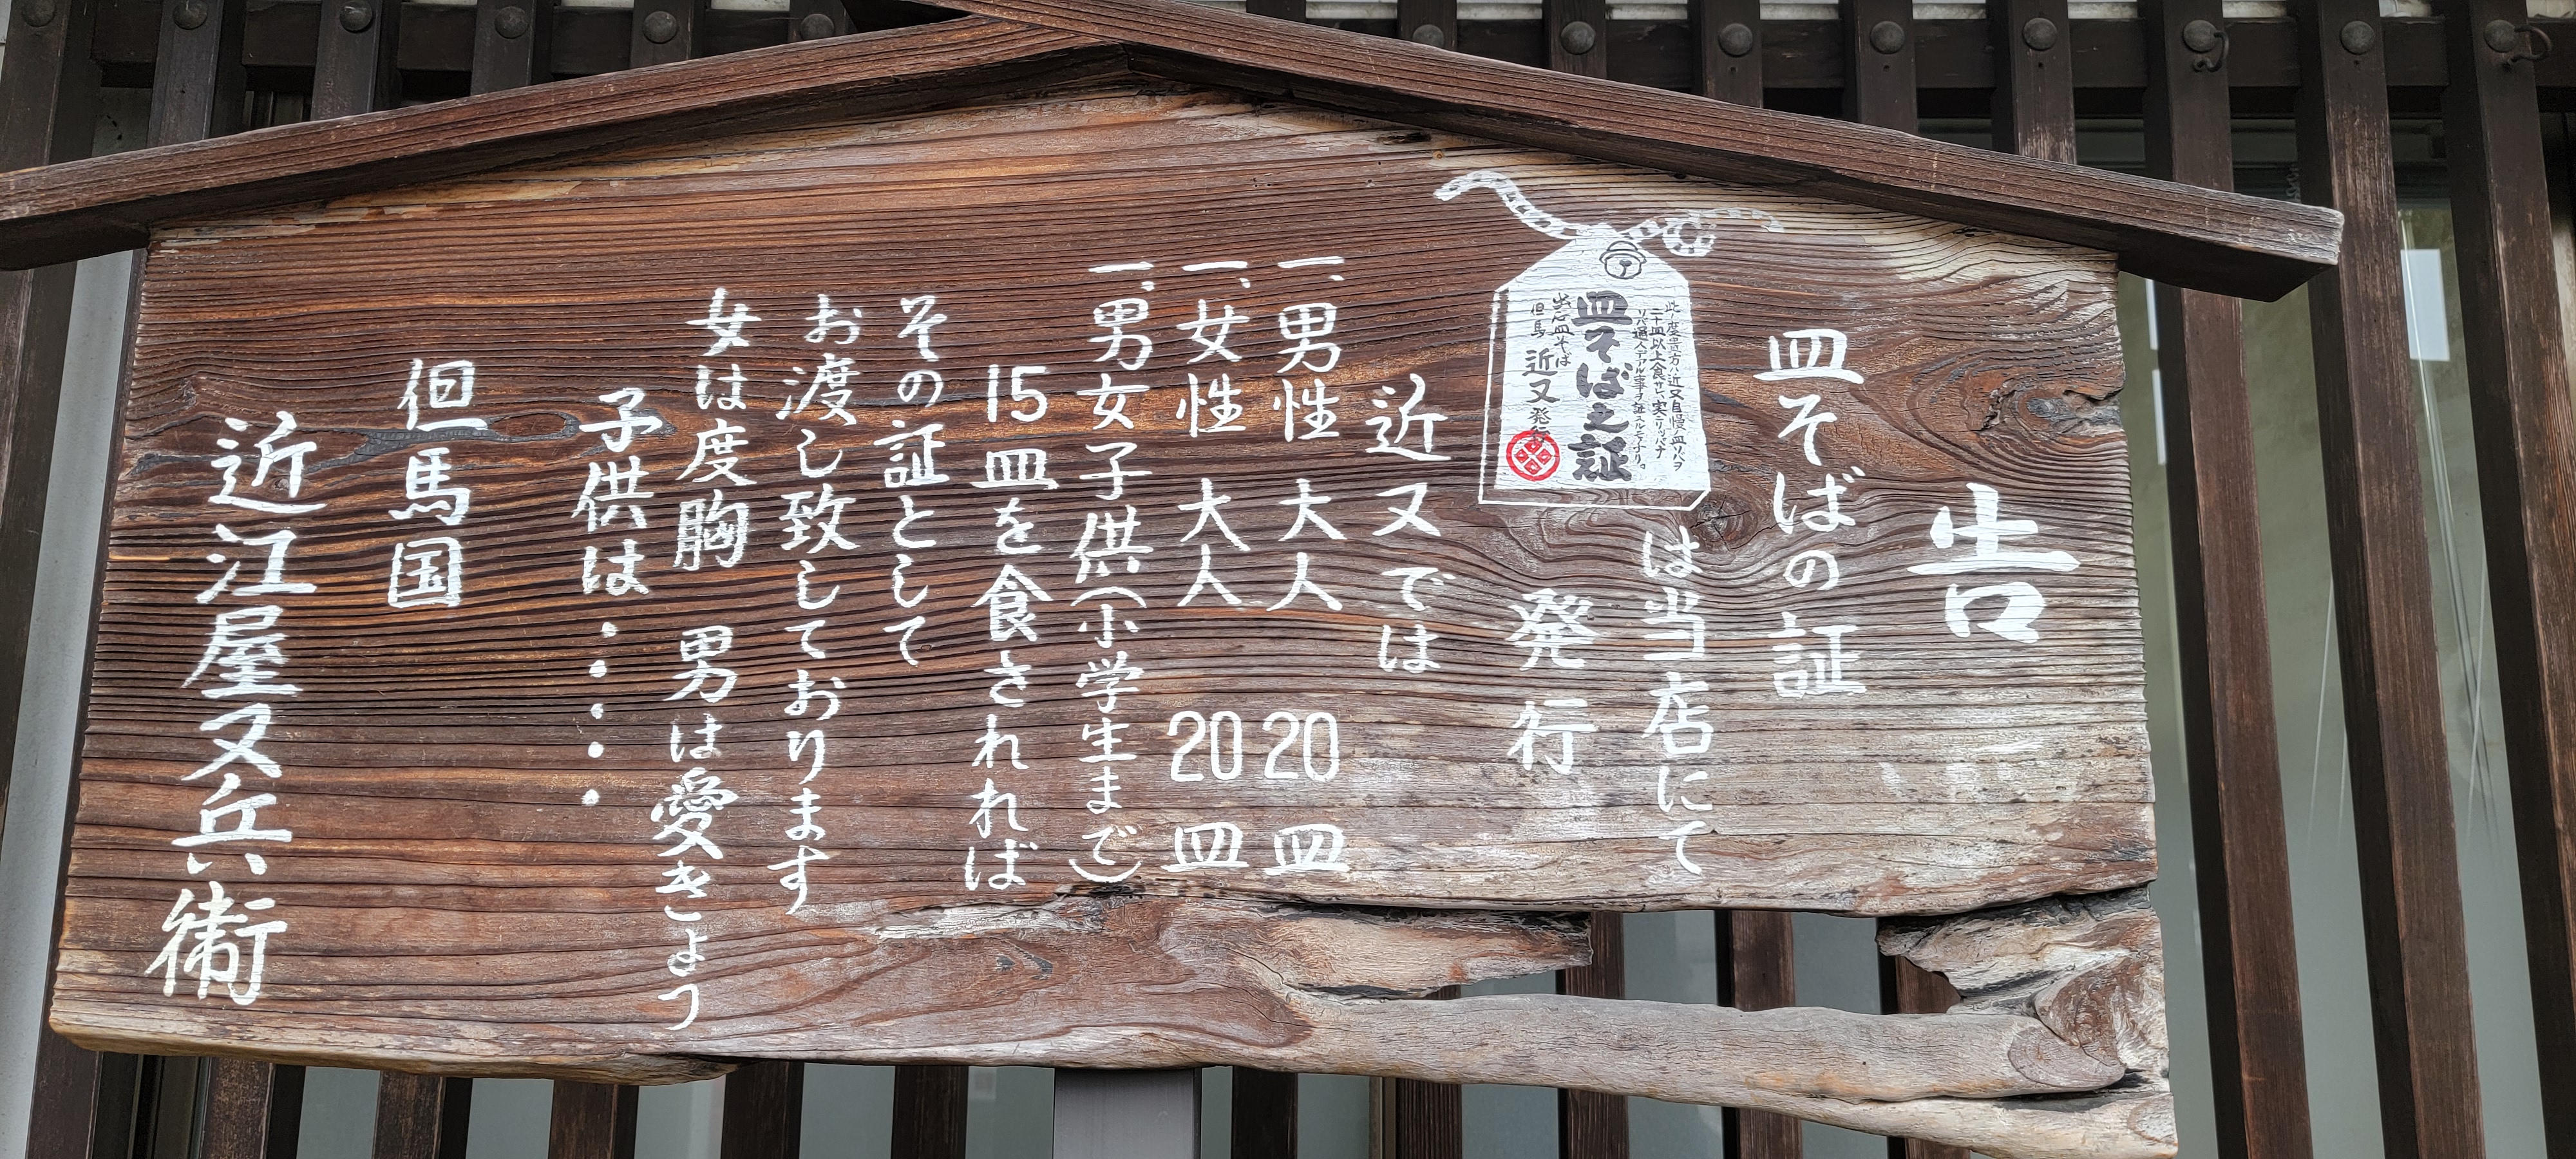 告
皿そばの証
は当店にて
発行
此ノ度貴方ハ近又自慢ノ皿そバヲ
二十皿以上食サレ実ニリッパナ
リバ通人デアル事ヲ証スルモノナリ。
皿そば之証
出石皿そば
但馬 近又 発行
近又では
一、男性 大人 20皿
一、女性 大人 20皿
一、男女子供(小学生まで)
15皿を食されれば
その証として
お渡し致しております
女は度胸 男は愛きょう
子供は・・・・・
但馬国
近江屋又兵衛